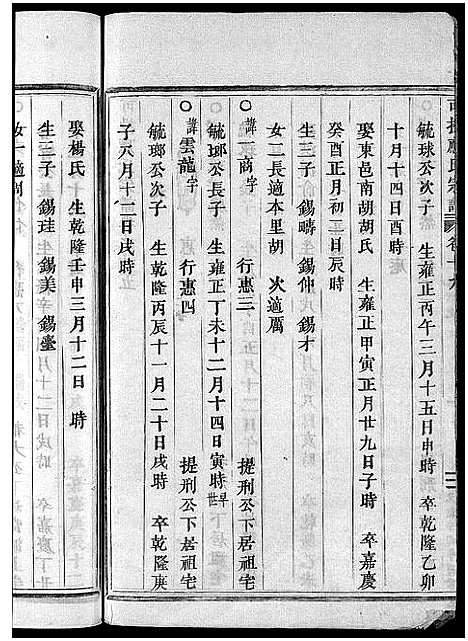 毓球公次子 生雍正丙午三月十五日申時 卒乾隆乙卯
十月十四日酉時
娶東邑南胡胡氏 生雍正甲寅正月廿九日子時 卒嘉慶
癸酉正月初二日辰時
生三子 錫疇 錫仲 錫才
女二長適本里胡 次適厲
○諱商字 行惠三 提刑公下居祖宅
毓瑯公長子 生雍正丁未十二月十四日寅時 早世
○諱雲龍字 行惠四 提刑公下居祖宅
毓瑯公次子 生乾隆丙辰十一月二十日戌時 卒乾隆庚
子八月十二日戌時
娶楊氏 生乾隆壬申三月十二日 時
生三子 錫珪 錫美 錫臺
女一適周